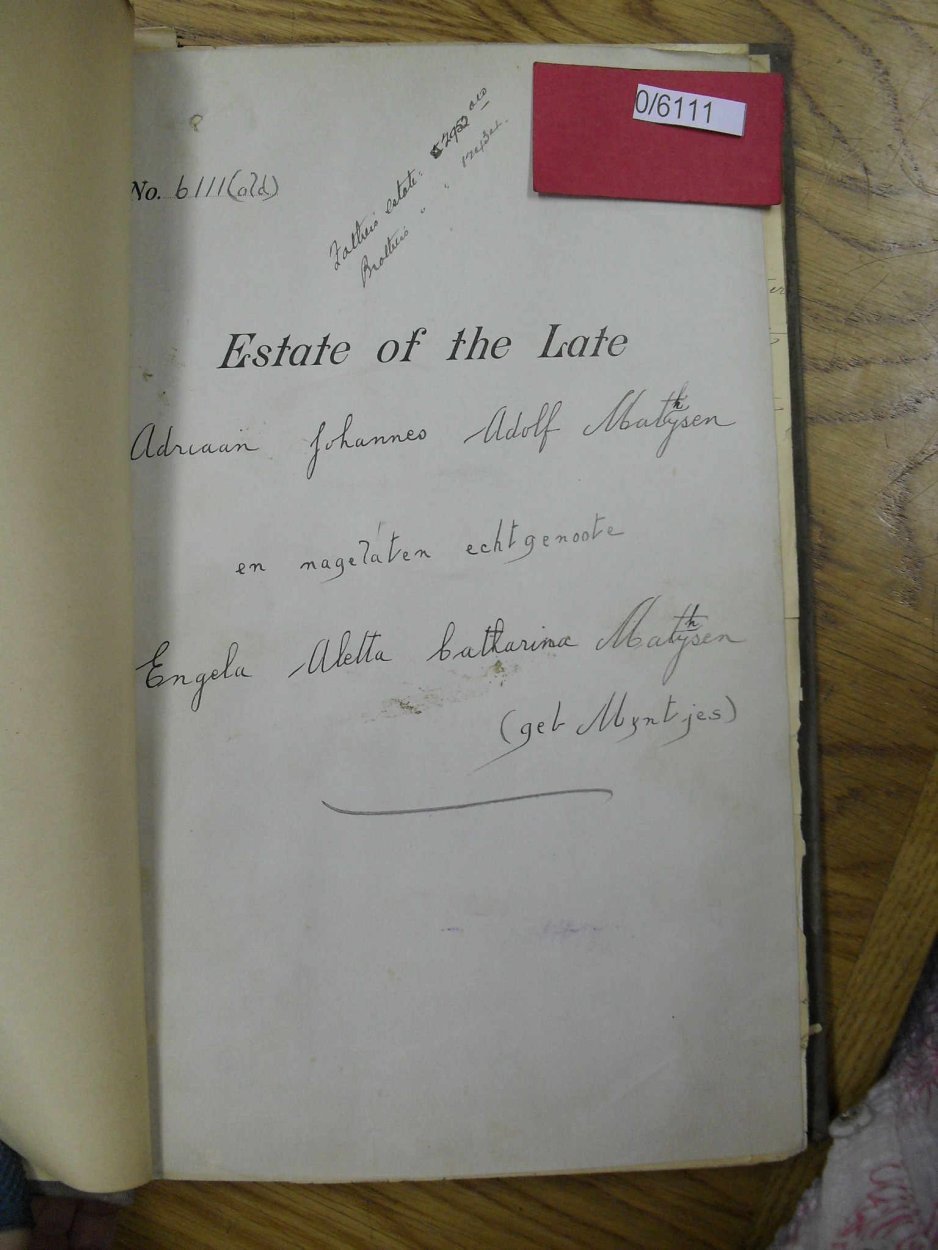 0/6111
No. 6111(old)
Father's estate: 2952 old
Brother's " "
Estate of the Late
Adriaan Johannes Adolf Mathysen
en nagelaten echtgenoote
Engela Aletta Catharina Mathysen
(geb Myntjes)